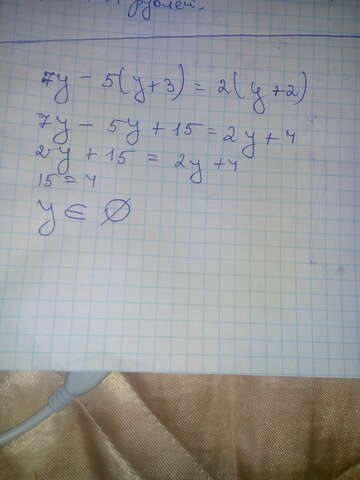 рублей.
7y - 5(y+3) = 2(y+2)
7y - 5y + 15 = 2y + 4
2y + 15 = 2y + 4
15 = 4
y ∈ ∅